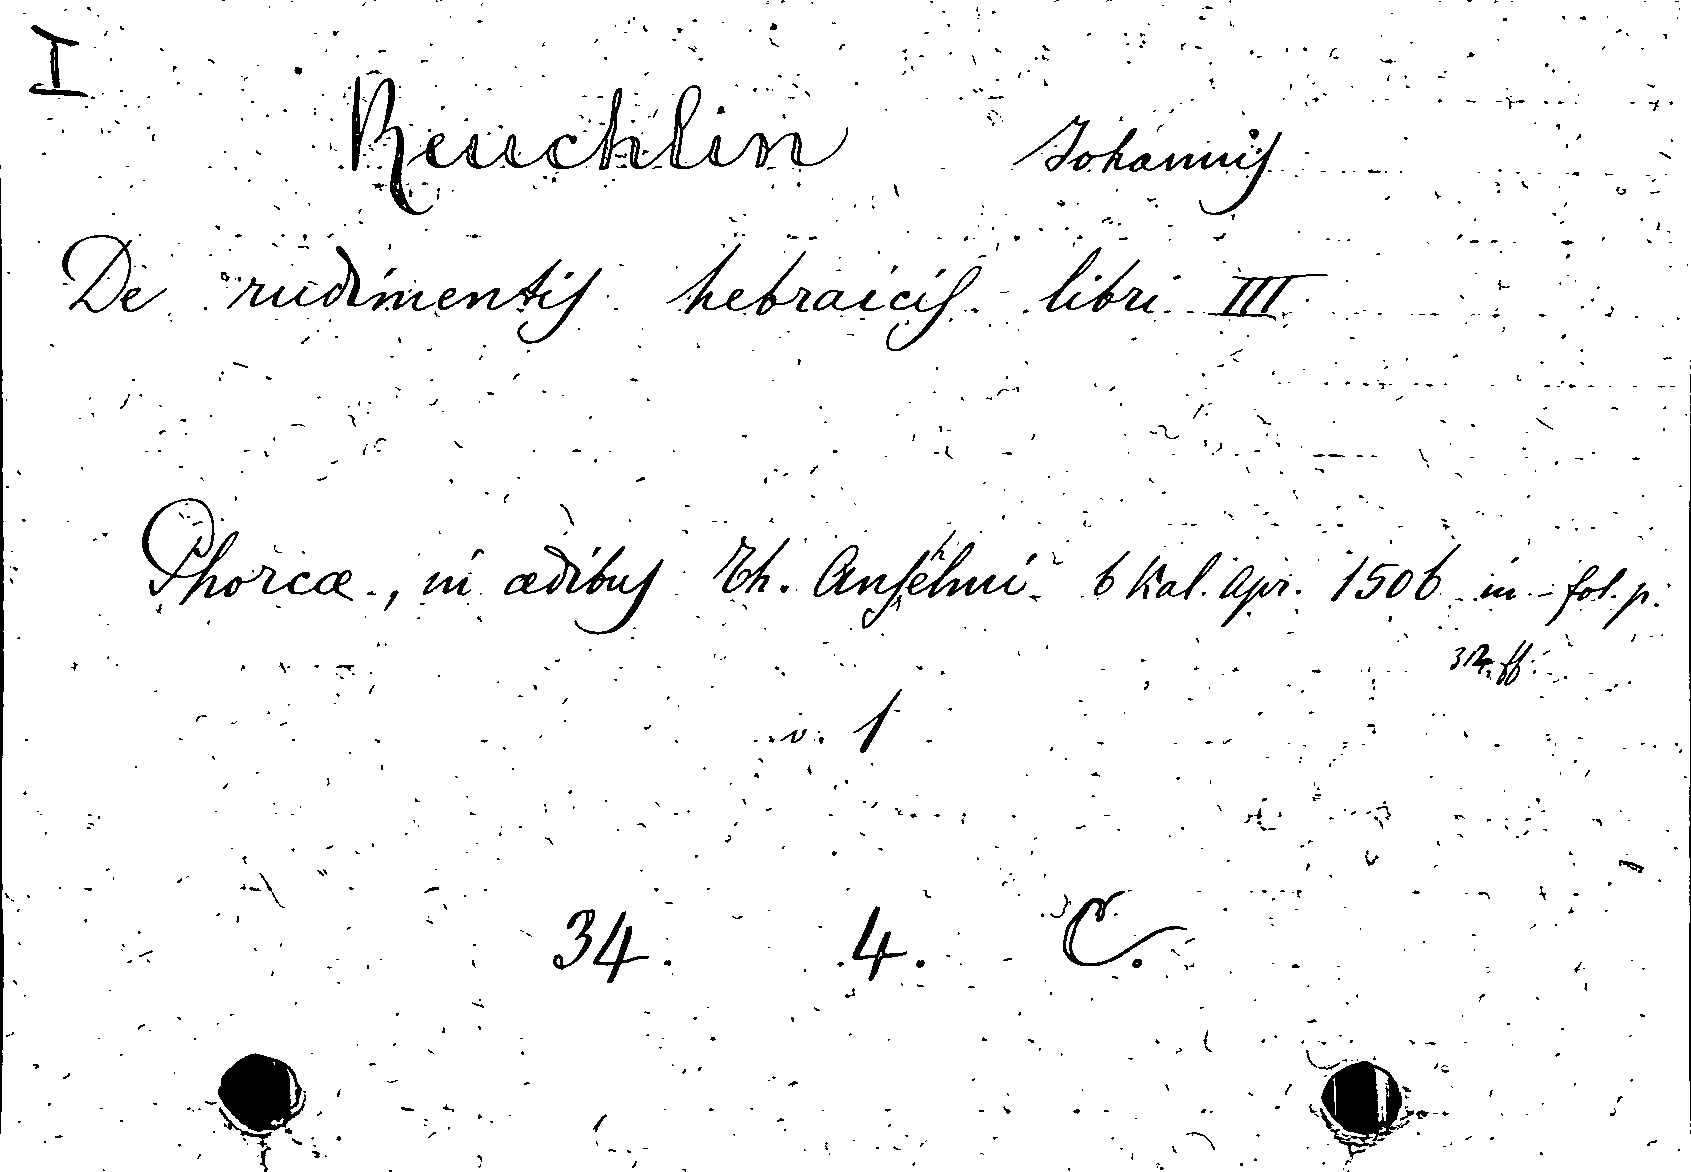 I
Reuchlin Johannis
De rudimentis hebraicis libri III
Phorcæ, in ædibus Th. Anshelmi 6 Kal. Apr. 1506 in fol. p.
ff.
v. 1
34. 4. C.